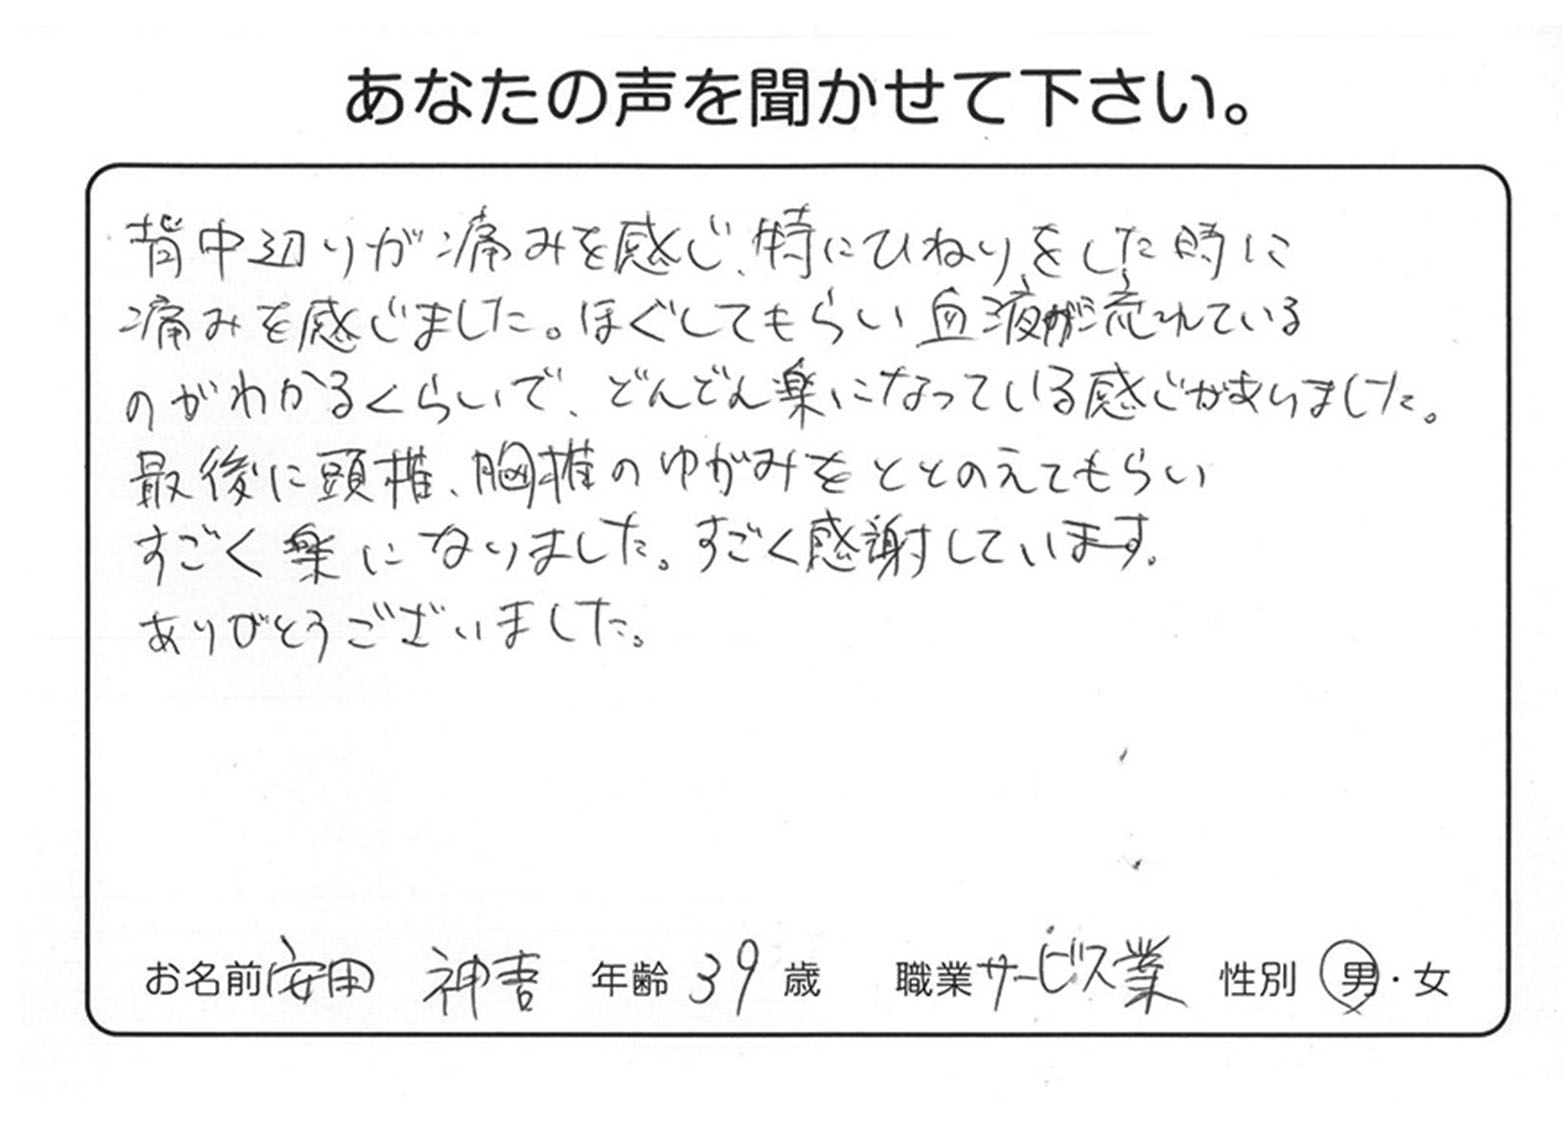 あなたの声を聞かせて下さい。
背中辺りが痛みを感じ、特にひねりをした時に
痛みを感じました。ほぐしてもらい血液が流れている
のがわかるくらいで、どんどん楽になっている感じがありました。
最後に頭椎、胸椎のゆがみをととのえてもらい
すごく楽になりました。すごく感謝しています。
ありがとうございました。
お名前 安田 神吉 年齢 39 歳 職業 サービス業 性別 男・女